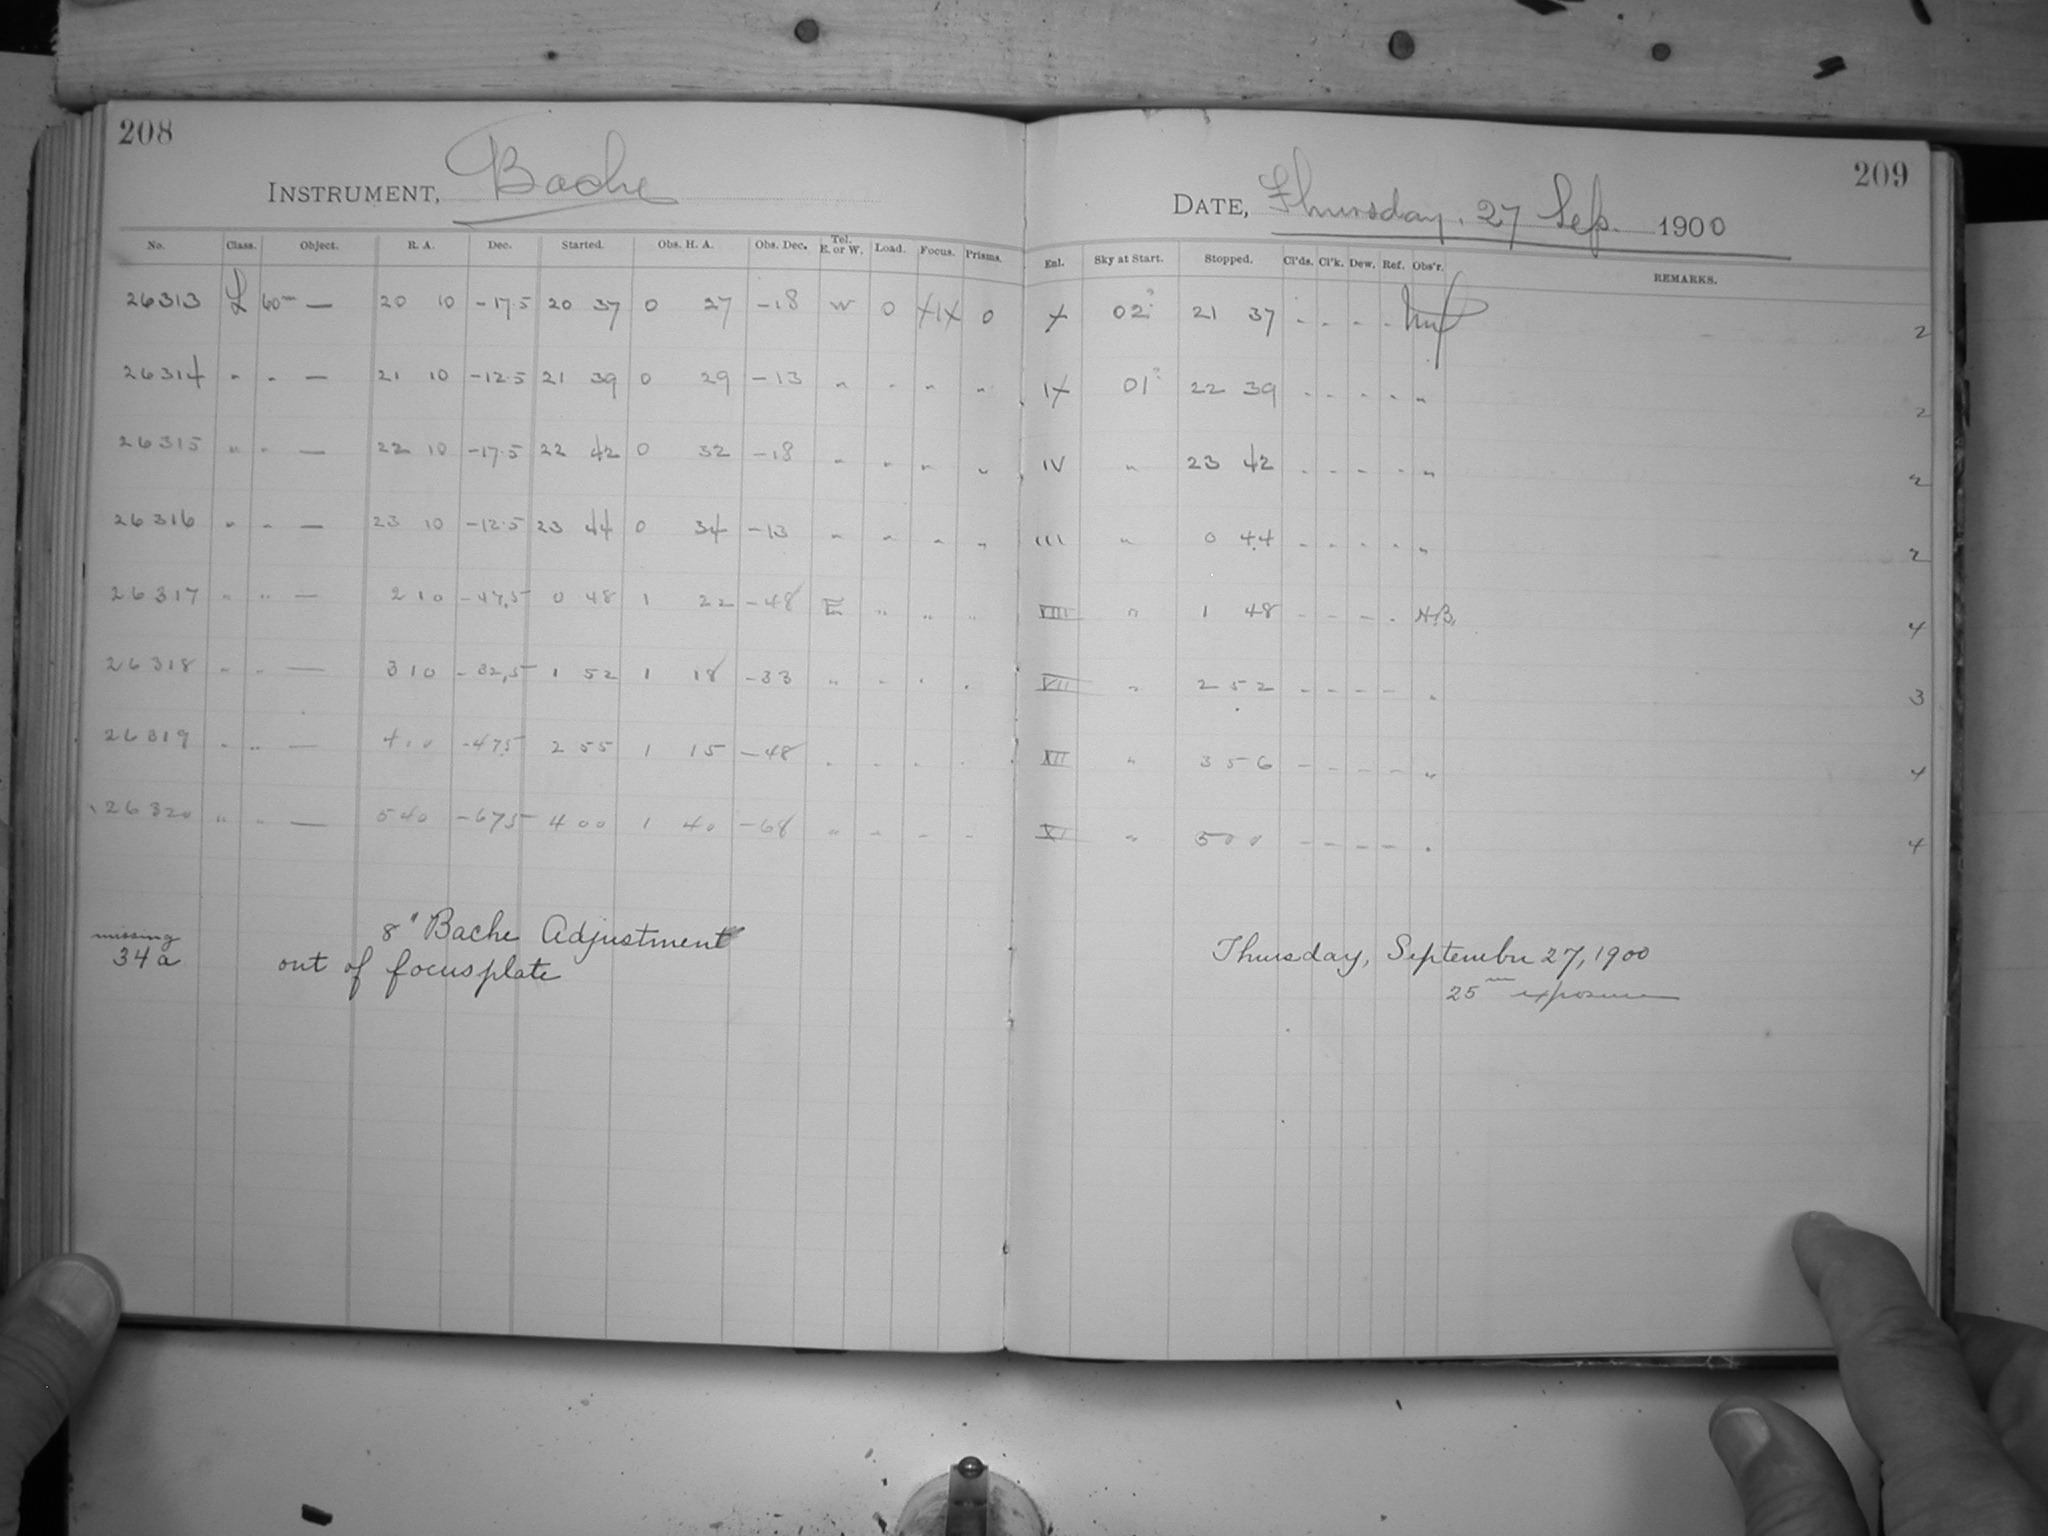 208
INSTRUMENT, Bache
No. Class. Object. R. A. Dec. Started. Obs. H. A. Obs. Dec. Tel. E. or W. Load. Focus. Prisms.
26313 L 60m — 20 10 -17.5 20 37 0 27 -18 W 0 0
26314 " " — 21 10 -12.5 21 39 0 29 -13 " " " "
26315 " " — 22 10 -17.5 22 42 0 32 -18 " " " "
26316 " " — 23 10 -12.5 23 44 0 34 -13 " " " "
26317 " " — 2 10 -47.5 0 48 1 22 -48 E " " "
26318 " " — 3 10 -32.5 1 52 1 18 -33 " " " "
26319 " " — 4 10 -47.5 2 55 1 15 -48 " " " "
26320 " " — 5 40 -67.5 4 00 1 40 -68 " " " "
missing
34a
8" Bache Adjustment
out of focus plate
209
DATE, Thursday, 27 Sep. 1900
Enl. Sky at Start. Stopped. Cl'ds. Cl'k. Dew. Ref. Obs'r. REMARKS.
X 02? 21 37 - - - - 2
IX 01? 22 39 - - - - " 2
IV " 23 42 - - - - " 2
III " 0 44 - - - - " 2
VIII " 1 48 - - - - 4
VII " 2 52 - - - - " 3
XII " 3 56 - - - - " 4
XI " 5 00 - - - - " 4
Thursday, September 27, 1900
25m exposure